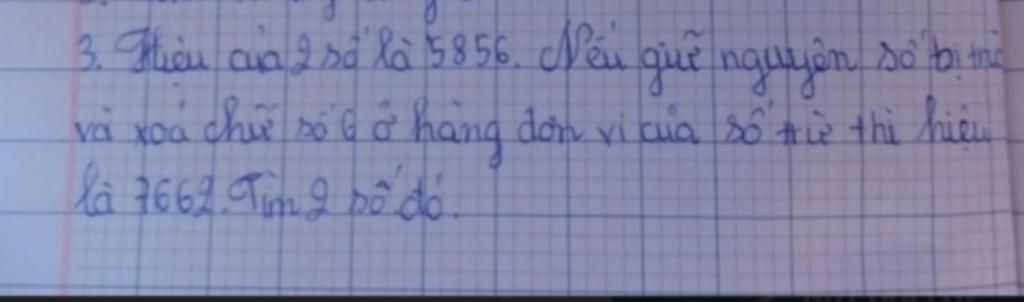 3. Hiệu của 2 số là 5856. Nếu giữ nguyên số bị trừ
và xoá chữ số 6 ở hàng đơn vị của số trừ thì hiệu
là 7662. Tìm 2 số đó.